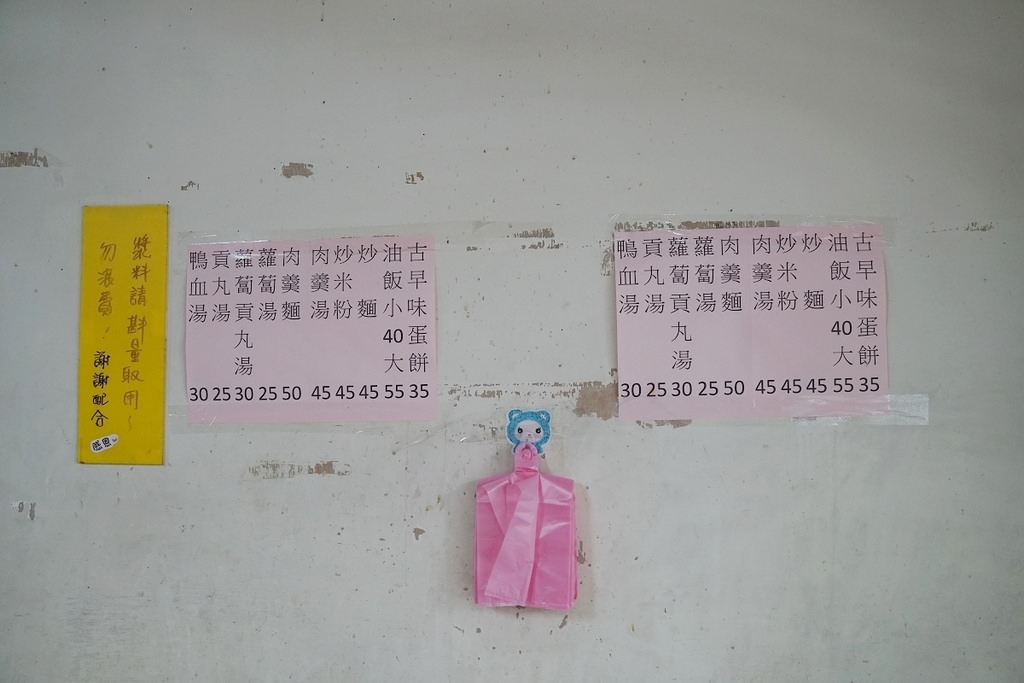 漿料請斟量取用~
勿浪費,
謝謝配合
感恩
古早味蛋餅 35
油飯小40大 55
炒麵 45
炒米粉 45
肉羹湯 45
肉羹麵 50
蘿蔔湯 25
蘿蔔貢丸湯 30
貢丸湯 25
鴨血湯 30
古早味蛋餅 35
油飯小40大 55
炒麵 45
炒米粉 45
肉羹湯 45
肉羹麵 50
蘿蔔湯 25
蘿蔔貢丸湯 30
貢丸湯 25
鴨血湯 30